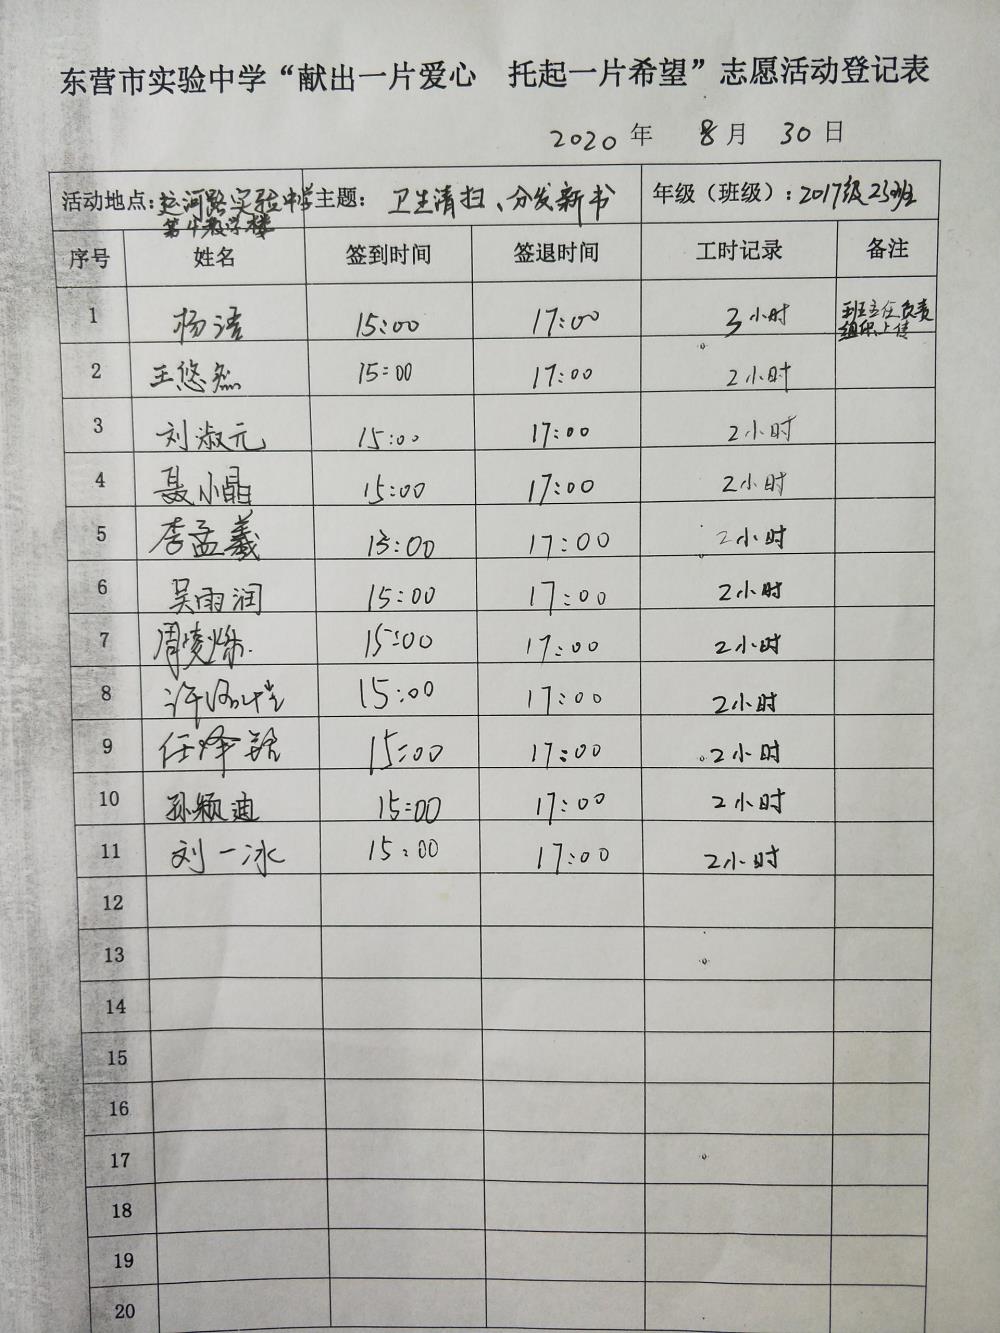 东营市实验中学“献出一片爱心 托起一片希望”志愿活动登记表
2020 年 8 月 30 日
活动地点：运河路实验中学 主题：卫生清扫、分发新书 年级（班级）：2017级23班
教学楼
序号 姓名 签到时间 签退时间 工时记录 备注
1 杨洁 15:00 17:00 3小时 班主任负责
组织上传
2 王悠然 15:00 17:00 2小时
3 刘淑元 15:00 17:00 2小时
4 聂小晶 15:00 17:00 2小时
5 李孟羲 15:00 17:00 2小时
6 吴雨润 15:00 17:00 2小时
7 周凌烁 15:00 17:00 2小时
8 许 15:00 17:00 2小时
9 任 15:00 17:00 2小时
10 孙颖迪 15:00 17:00 2小时
11 刘一冰 15:00 17:00 2小时
12
13
14
15
16
17
18
19
20